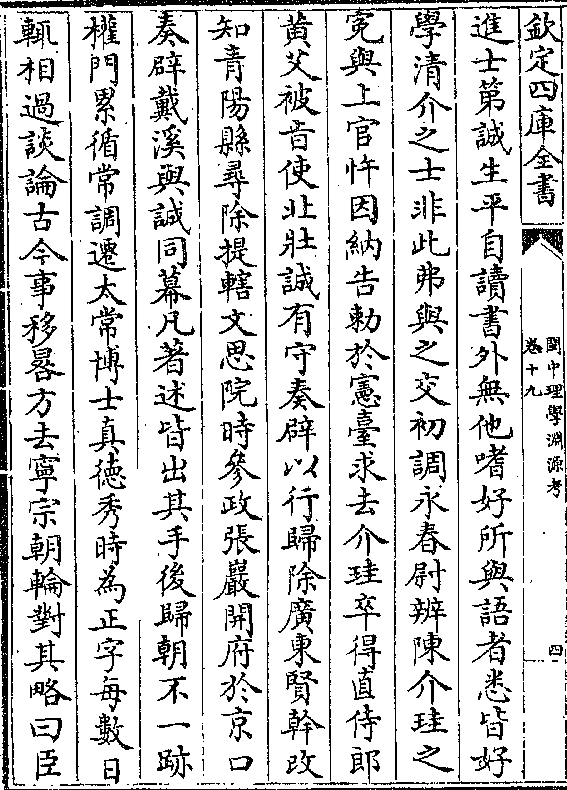 欽定四庫全書
閩中理學淵源考
卷十九
四
進士第誠生平自讀書外無他嗜好所與語者悉皆好
學清介之士非此弗與之交初調永春尉辨陳介珪之
寃與上官忤因納告勅於憲臺求去介珪卒得直侍郎
黄艾被㫖使北壯誠有守奏辟以行歸除廣東賢幹改
知青陽縣尋除提轄文思院時參政張巖開府於京口
奏辟戴溪與誠同幕凡著述皆出其手後歸朝不一跡
權門累循常調遷太常博士真徳秀時為正字每數日
輒相過談論古今事移晷方去寧宗朝輪對其略曰臣